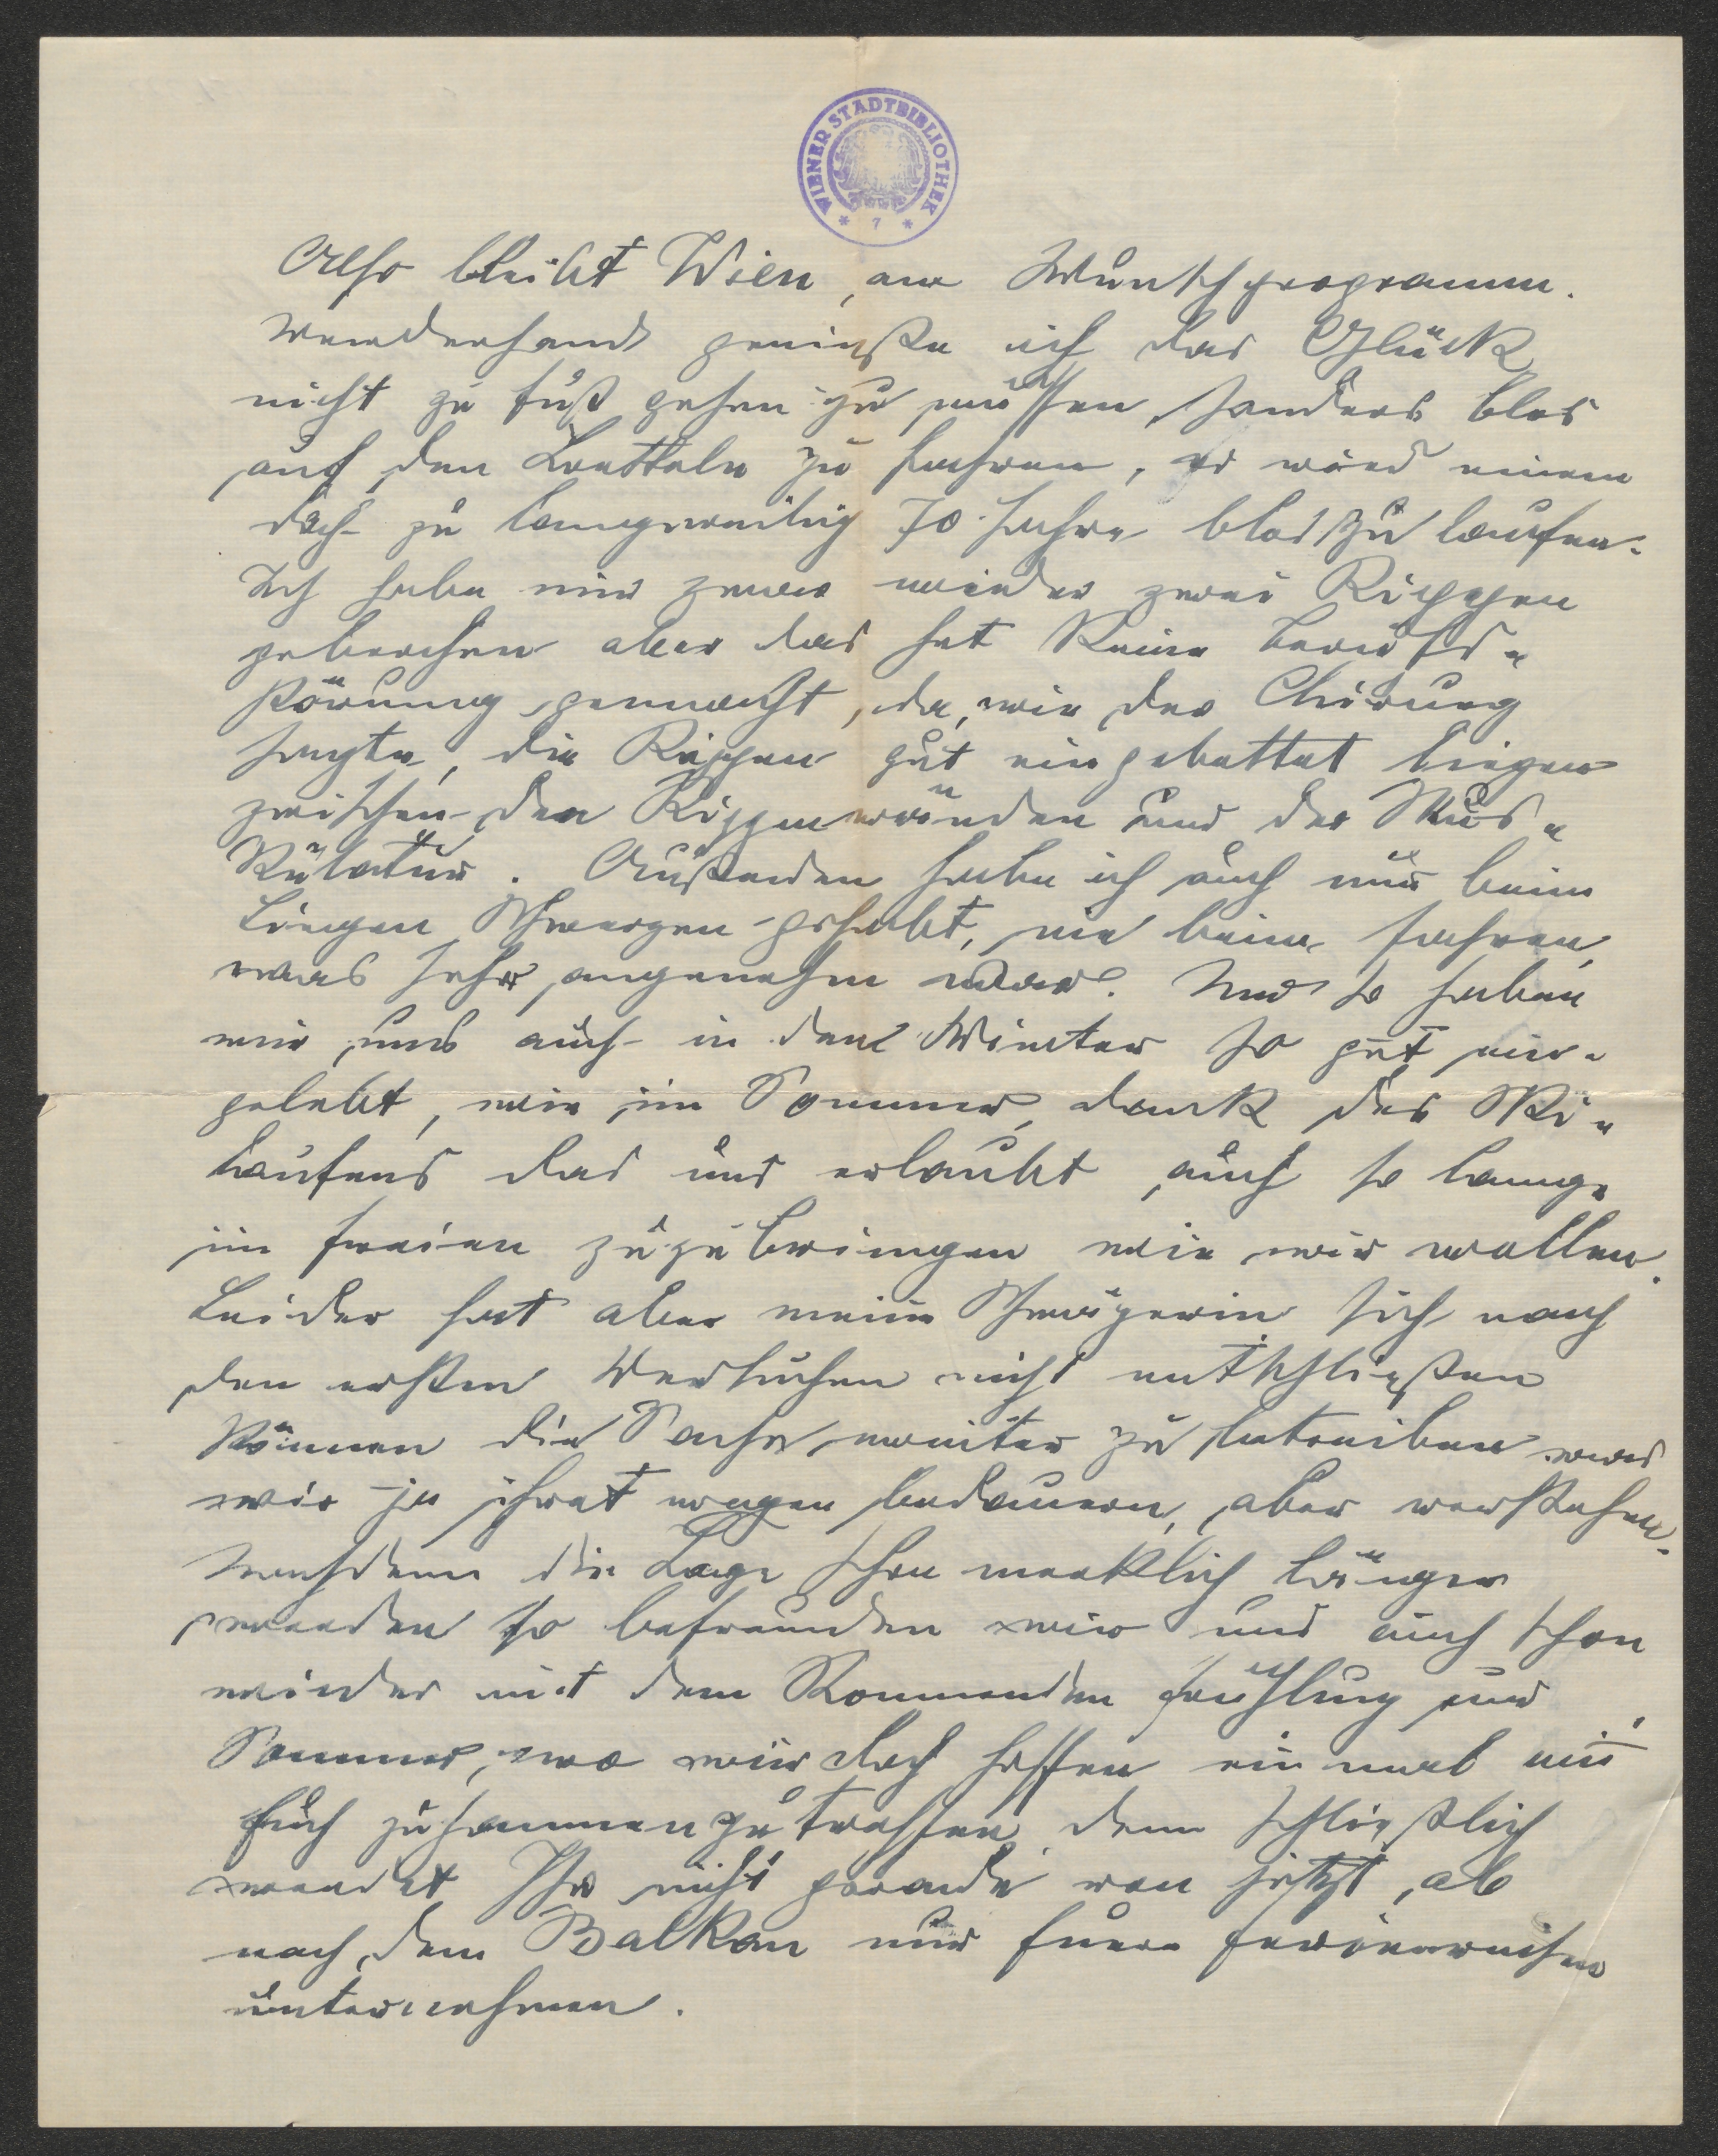 WIENER STADTBIBLIOTHEK
* 7 *
Also bleibt Wien am Wunschprogramm.
Vorderhand genieße ich das Glück
nicht zu Fuß gehen zu müssen, sonders blos
auf den Bretteln zu fahren, es wird einem
doch zu langweilig 70 Jahre blos zu laufen.
Ich habe mir zwar wieder zwei Rippen
gebrochen aber das hat keine Berufs-
störung gemacht, da, wie der Chirurg
sagte, die Rippen gut eingebettet liegen
zwischen den Rippenwänden und der Mus-
kulatur. Außerdem habe ich auch nur beim
Liegen Schmerzen gehabt, nie beim Fahren,
was sehr angenehm war. Und so haben
wir uns auch in den Winter so gut ein-
gelebt, wie im Sommer, dank des Ski-
laufens das uns erlaubt, auch so lange
im Freien zuzubringen wie wir wollen.
Leider hat aber meine Schwägerin sich nach
den ersten Versuchen nicht entschließen
können die Sache weiter zu betreiben was
wir ja ihret wegen bedauern, aber verstehen.
Nachdem die Tage schon merklich länger
werden so befreunden wir uns auch schon
wieder mit dem kommenden Frühling und
Sommer, wo wir doch hoffen einmal mit
Euch zusammenzutreffen, denn schließlich
werdet Ihr nicht gerade von jetzt ab
nach dem Balkan nur Euere Ferienreisen
unternehmen.